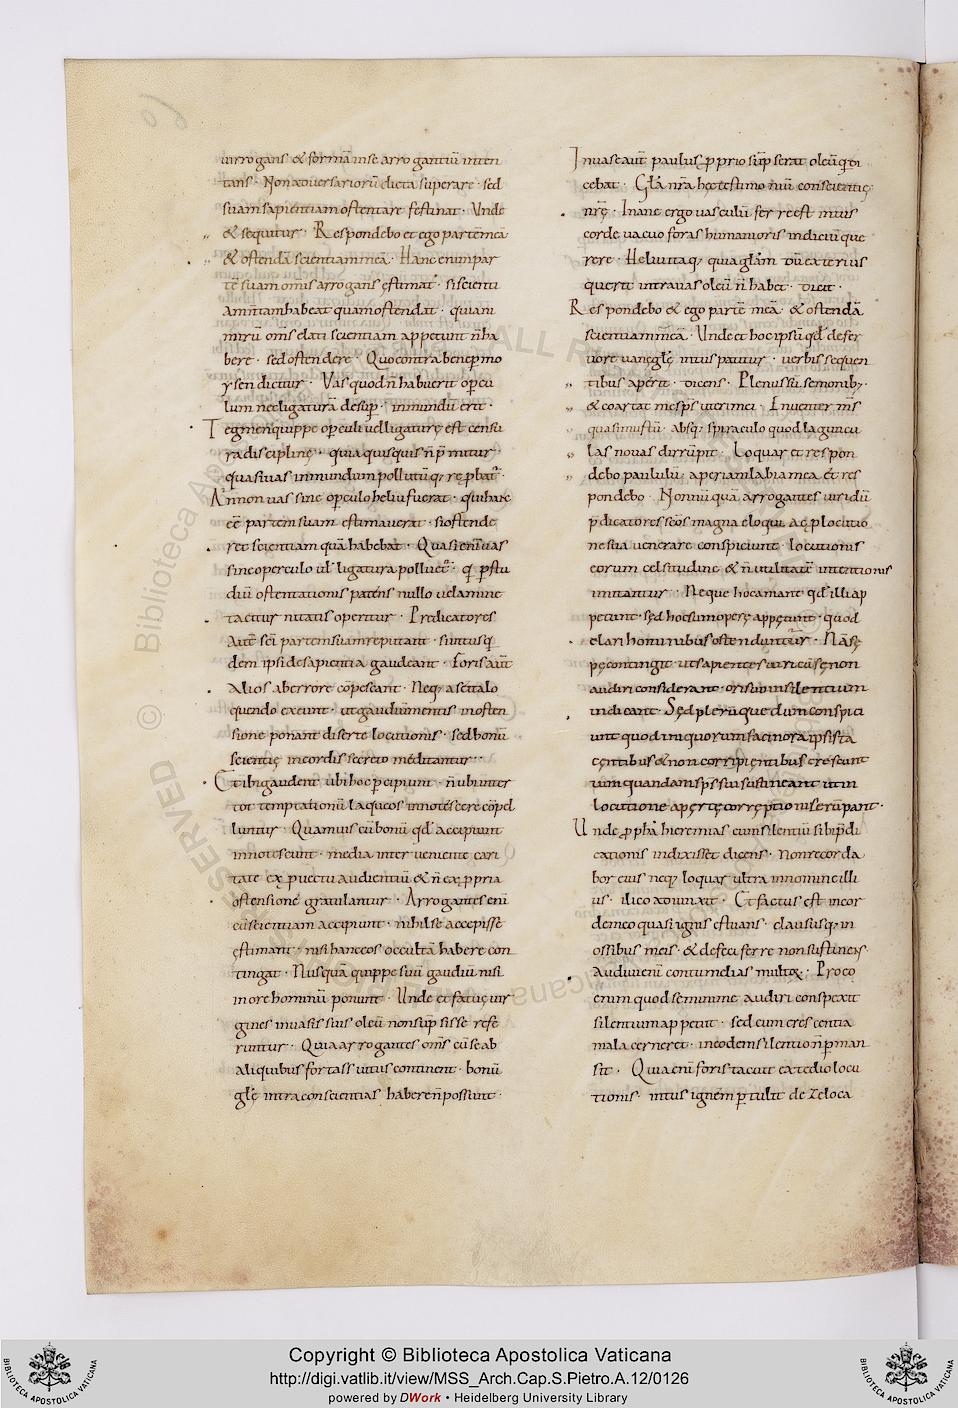 uir rogans & formā inse arrogantiū inten
tans· Non aduersariorū dicta superare· sed
suam sapientiam ostentare festinat· Unde
& sequitur· Respondebo et ego partē meā
& ostendā scientiam meā· Hanc enim par
tē suam om̄is arrogans ęstimat· si scienti
am n̄ tam habeat quam ostendat· quia ni
mirū om̄s elati scientiam appetunt n̄ ha
bere· sed ostendere· Quo contra bene p̄ mo
ysen dicitur· Vas quod n̄ habuerit opercu
lum nec ligaturā desup̄· inmundū erit·
Tegmen quippe op̄culi uel ligaturę est censu
ra disciplinę· qua quisquis n̄ p̄mitur·
quasi uas inmundum pollutū q; rep̄batur·
An non uas sine op̄culo heliu fuerat· qui hanc
eē partem suam estimauerat· si ostende
ret scientiam quā habebat· Quasi enī uas
sine operculo ul' ligatura polluet'· q p̄ stu
diū ostentationis patens nullo uelamine
taciturnitatis operitur· Predicatores
autē sc̄i partem suam reputant· si intus q
dem ipsi de sapientia gaudeant· foris aūt
alios ab errore cōpescant· Neq; a se in alo
quendo exeunt· ut gaudiū mentis in osten
sione ponant disertę locutionis· sed bonū
scientię in cordis secreto meditantur·
Et ibi gaudent ubi hoc percipiunt· n̄ ubi inter
tot temptationū laqueos innotescere cōpel
luntur· Quamuis cū bonū qd' accipiunt
innotescunt· media interueniente cari
tate ex p̄uectu audientiū & n̄ ex p̄pria
ostensione gratulantur· Arrogantes enī
cū scientiam accipiunt· nihil se accepisse
ęstimant· nisi hanc eos occultā habere con
tingat· Nusquā quippe suū gaudiū nisi
in ore hominū ponunt· Unde et fatuę uir
gines in uasis suis oleū non sūpsisse refe
runtur· Quia arrogantes om̄s cū se ab
aliquibus fortasse uitiis continent· bonū
glę intra conscientias habere n̄ possunt·
In uase aūt paulus p̄prio sūpserat oleū q di
cebat· Gl̄a nr̄a hęc testimoniū conscientię
nrę· Inane ergo uasculū ferre est intus
corde uacuo foras humani oris indiciū que
rere· Heliu itaq; quia glām dū exterius
querit intra uas oleū n̄ habet· dicit·
Respondebo & ego partē meā· & ostendā
scientiam meā· Unde et hoc ipsū qd' de fer
uore uanę glę intus patitur· uerbis sequen
tibus aperit· dicens· Plenus sū sermonib;·
& coartat me sp̄s uteri mei· En uenter m̄s
quasi mustū· absq; spiraculo quod laguncu
las nouas dirrūpit· Loquar et respon
debo paululū· aperiam labia mea et res
pondebo· Nonnūquā arrogantes uiri dū
p̄dicatores sc̄os magna eloqui ac p̄ locutio
ne sua uenerare conspiciunt· locutionis
eorum celsitudinē & n̄ utilitatē intentionis
imitantur· Neque hoc amant qd' illi ap
petunt· sed hoc summopere appetunt· quod
elati hominibus ostenduntur· Nā sę
pe contingit ut sapientes uiri cū se non
audiri considerant· ori suo silentium
indicant· Sed plerūque dum conspici
unt quod iniquorum facinora ipsis ta
centibus & non corripientibus crescunt
uim quandam sp̄s sui sustineant ut in
locutione apertę correptionis erūpant·
Unde p̄pha hieremias cum silentiū sibi p̄di
cationis indixisset dicens· Non recorda
bor eius neq; loquar ultra in nomine illi
us· ilico adiunxit· Et factus est in cor
de meo quasi ignis estuans· claususq; in
ossibus meis· & defeci ferre non sustinens·
Audiui enī contumelias multoꝝ· Pro eo
enim quod se minime audiri conspexit
silentium appetiit· sed cum crescentia
mala cerneret· in eodem silentio n̄ p̄man
sit· Quia enī foris tacuit ex tedio locu
tionis· intus ignem p̄tulit de zelo ca
Copyright © Biblioteca Apostolica Vaticana
http://digi.vatlib.it/view/MSS_Arch.Cap.S.Pietro.A.12/0126
powered by DWork • Heidelberg University Library